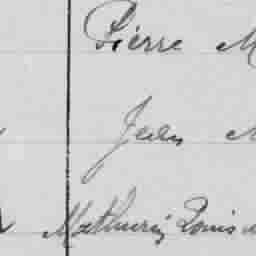 Pierre M
Jean M
Mathurin Louis